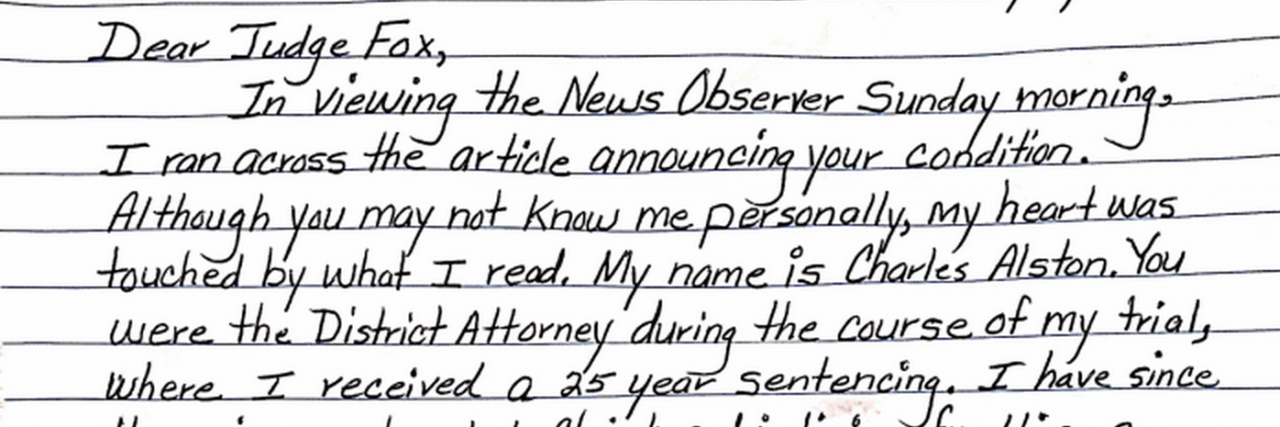 Dear Judge Fox,
In viewing the News Observer Sunday morning,
I ran across the article announcing your condition.
Although you may not know me personally, my heart was
touched by what I read. My name is Charles Alston. You
were the District Attorney during the course of my trial,
where I received a 25 year sentencing. I have since